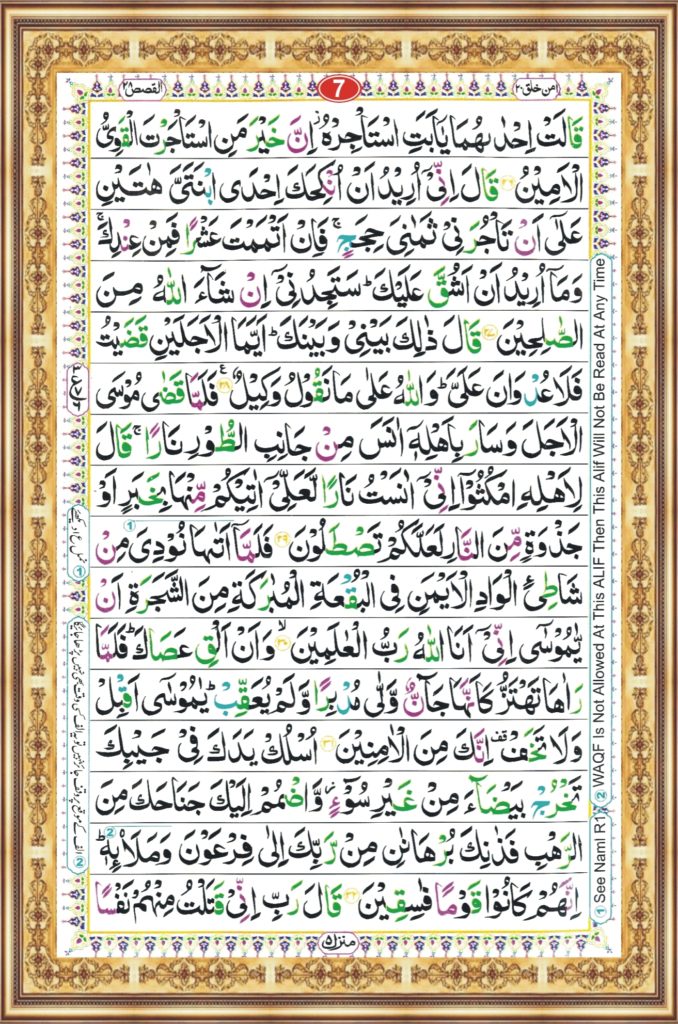 القصص ۲۸
7
امن خلق ۲۰
قَالَتْ اِحْدٰىهُمَا يٰٓاَبَتِ اسْتَاْجِرْهُ ز اِنَّ خَيْرَ مَنِ اسْتَاْجَرْتَ الْقَوِيُّ
الْاَمِيْنُ ۲۶ قَالَ اِنِّيْٓ اُرِيْدُ اَنْ اُنْكِحَكَ اِحْدَى ابْنَتَيَّ هٰتَيْنِ
عَلٰٓى اَنْ تَاْجُرَنِيْ ثَمٰنِيَ حِجَجٍ ۚ فَاِنْ اَتْمَمْتَ عَشْرًا فَمِنْ عِنْدِكَ ۚ
وَمَآ اُرِيْدُ اَنْ اَشُقَّ عَلَيْكَ ؕ سَتَجِدُنِيْٓ اِنْ شَآءَ اللّٰهُ مِنَ
الصّٰلِحِيْنَ ۲۷ قَالَ ذٰلِكَ بَيْنِيْ وَبَيْنَكَ ؕ اَيَّمَا الْاَجَلَيْنِ قَضَيْتُ
فَلَا عُدْوَانَ عَلَيَّ ؕ وَاللّٰهُ عَلٰى مَا نَقُوْلُ وَكِيْلٌ ۲۸ فَلَمَّا قَضٰى مُوْسَى
الْاَجَلَ وَسَارَ بِاَهْلِهٖٓ اٰنَسَ مِنْ جَانِبِ الطُّوْرِ نَارًا ۚ قَالَ
لِاَهْلِهِ امْكُثُوْٓا اِنِّيْٓ اٰنَسْتُ نَارًا لَّعَلِّيْٓ اٰتِيْكُمْ مِّنْهَا بِخَبَرٍ اَوْ
جَذْوَةٍ مِّنَ النَّارِ لَعَلَّكُمْ تَصْطَلُوْنَ ۲۹ فَلَمَّآ اَتٰىهَا نُوْدِيَ مِنْ
شَاطِئِ الْوَادِ الْاَيْمَنِ فِي الْبُقْعَةِ الْمُبٰرَكَةِ مِنَ الشَّجَرَةِ اَنْ
يّٰمُوْسٰٓى اِنِّيْٓ اَنَا اللّٰهُ رَبُّ الْعٰلَمِيْنَ ۳۰ وَاَنْ اَلْقِ عَصَاكَ ؕ فَلَمَّا
رَاٰهَا تَهْتَزُّ كَاَنَّهَا جَآنٌّ وَّلّٰى مُدْبِرًا وَّلَمْ يُعَقِّبْ ؕ يٰمُوْسٰٓى اَقْبِلْ
وَلَا تَخَفْ قف اِنَّكَ مِنَ الْاٰمِنِيْنَ ۳۱ اُسْلُكْ يَدَكَ فِيْ جَيْبِكَ
تَخْرُجْ بَيْضَآءَ مِنْ غَيْرِ سُوْٓءٍ ز وَّاضْمُمْ اِلَيْكَ جَنَاحَكَ مِنَ
الرَّهْبِ فَذٰنِكَ بُرْهَانٰنِ مِنْ رَّبِّكَ اِلٰى فِرْعَوْنَ وَمَلَا۟ئِهٖ ؕ
اِنَّهُمْ كَانُوْا قَوْمًا فٰسِقِيْنَ ۳۲ قَالَ رَبِّ اِنِّيْ قَتَلْتُ مِنْهُمْ نَفْسًا
منزل ۵
1 See Naml R1 2 WAQF Is Not Allowed At This ALIF Then This Alif Will Not Be Read At Any Time